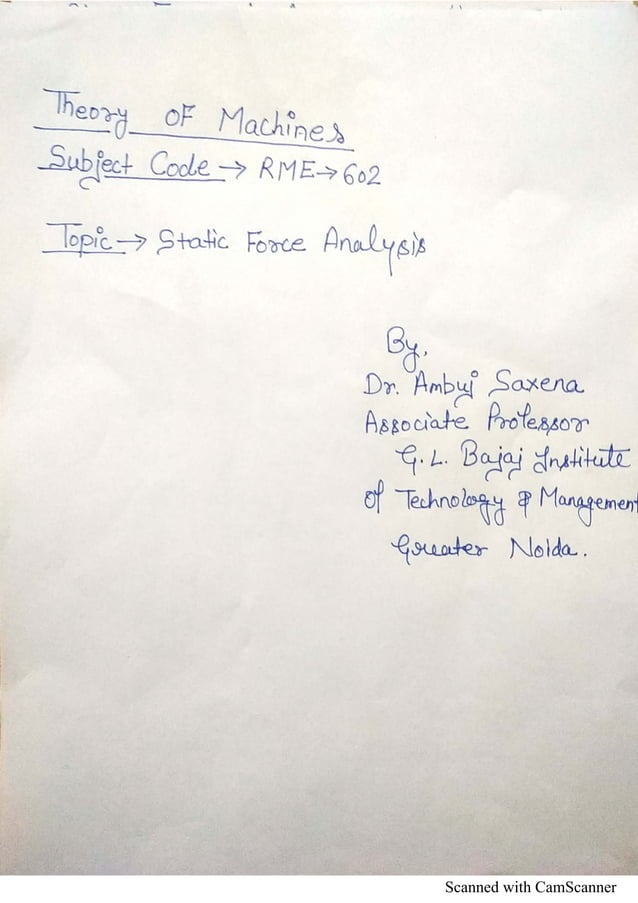 Theory OF Machines
Subject Code → RME→602
Topic → Static Force Analysis
By,
Dr. Ambuj Saxena
Associate Professor
G. L. Bajaj Institute
of Technology & Management
Greater Noida.
Scanned with CamScanner